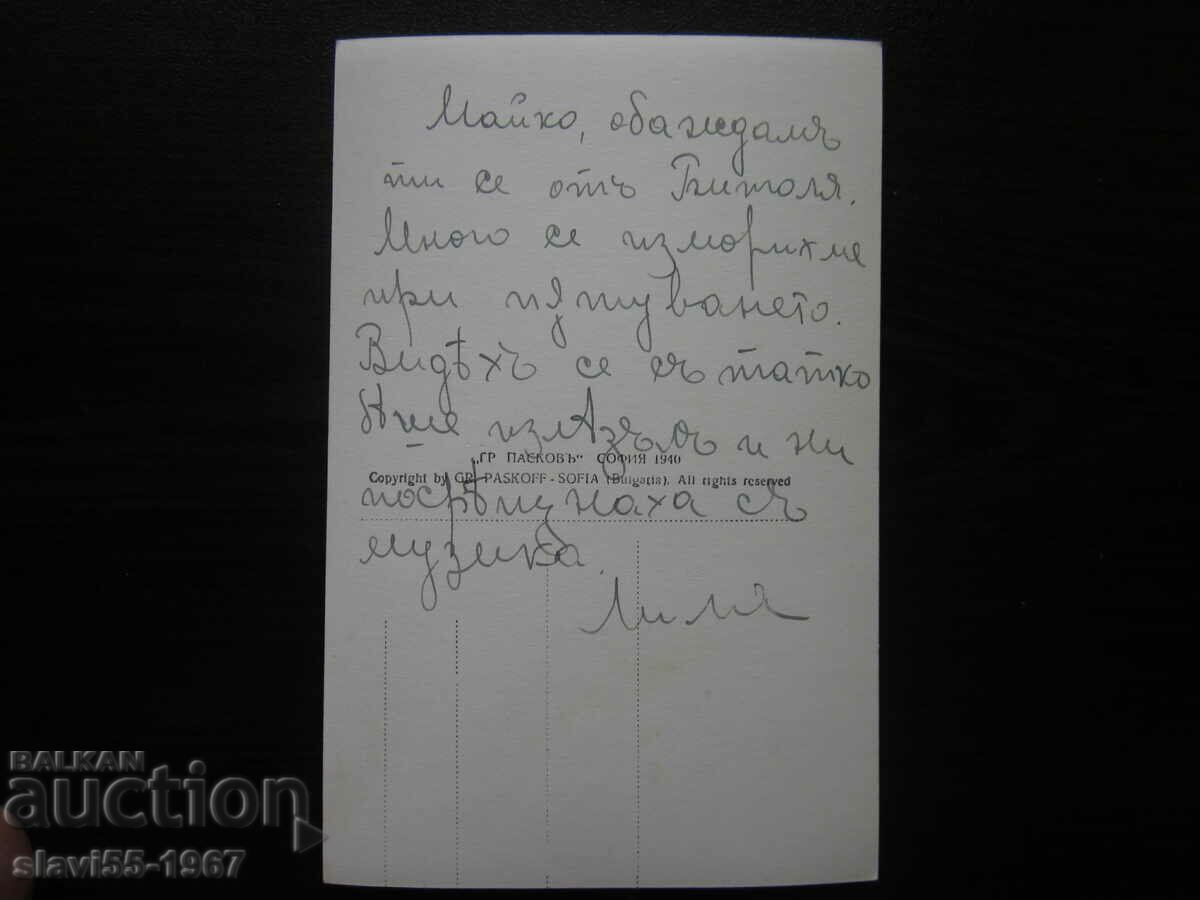 Майко, обаждамъ
ти се отъ Битоля.
Много се изморихме
при пѫтуването.
Видѣхъ се съ татко
излѣзълъ и ни
„ГР ПАСКОВЪ“ СОФИЯ 1940
Copyright by GR. PASKOFF - SOFIA (Bulgaria). All rights reserved
посрѣщнаха съ
музика.
Лиля
BALKAN
auction
slavi55-1967